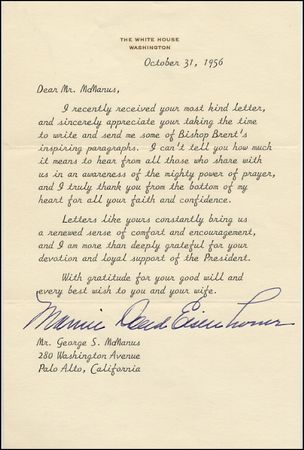 THE WHITE HOUSE
WASHINGTON
October 31, 1956
Dear Mr. McManus,
I recently received your most kind letter,
and sincerely appreciate your taking the time
to write and send me some of Bishop Brent's
inspiring paragraphs. I can't tell you how much
it means to hear from all those who share with
us in an awareness of the mighty power of prayer,
and I truly thank you from the bottom of my
heart for all your faith and confidence.
Letters like yours constantly bring us
a renewed sense of comfort and encouragement,
and I am more than deeply grateful for your
devotion and loyal support of the President.
With gratitude for your good will and
every best wish to you and your wife.
Mamie Doud Eisenhower
Mr. George S. McManus
280 Washington Avenue
Palo Alto, California